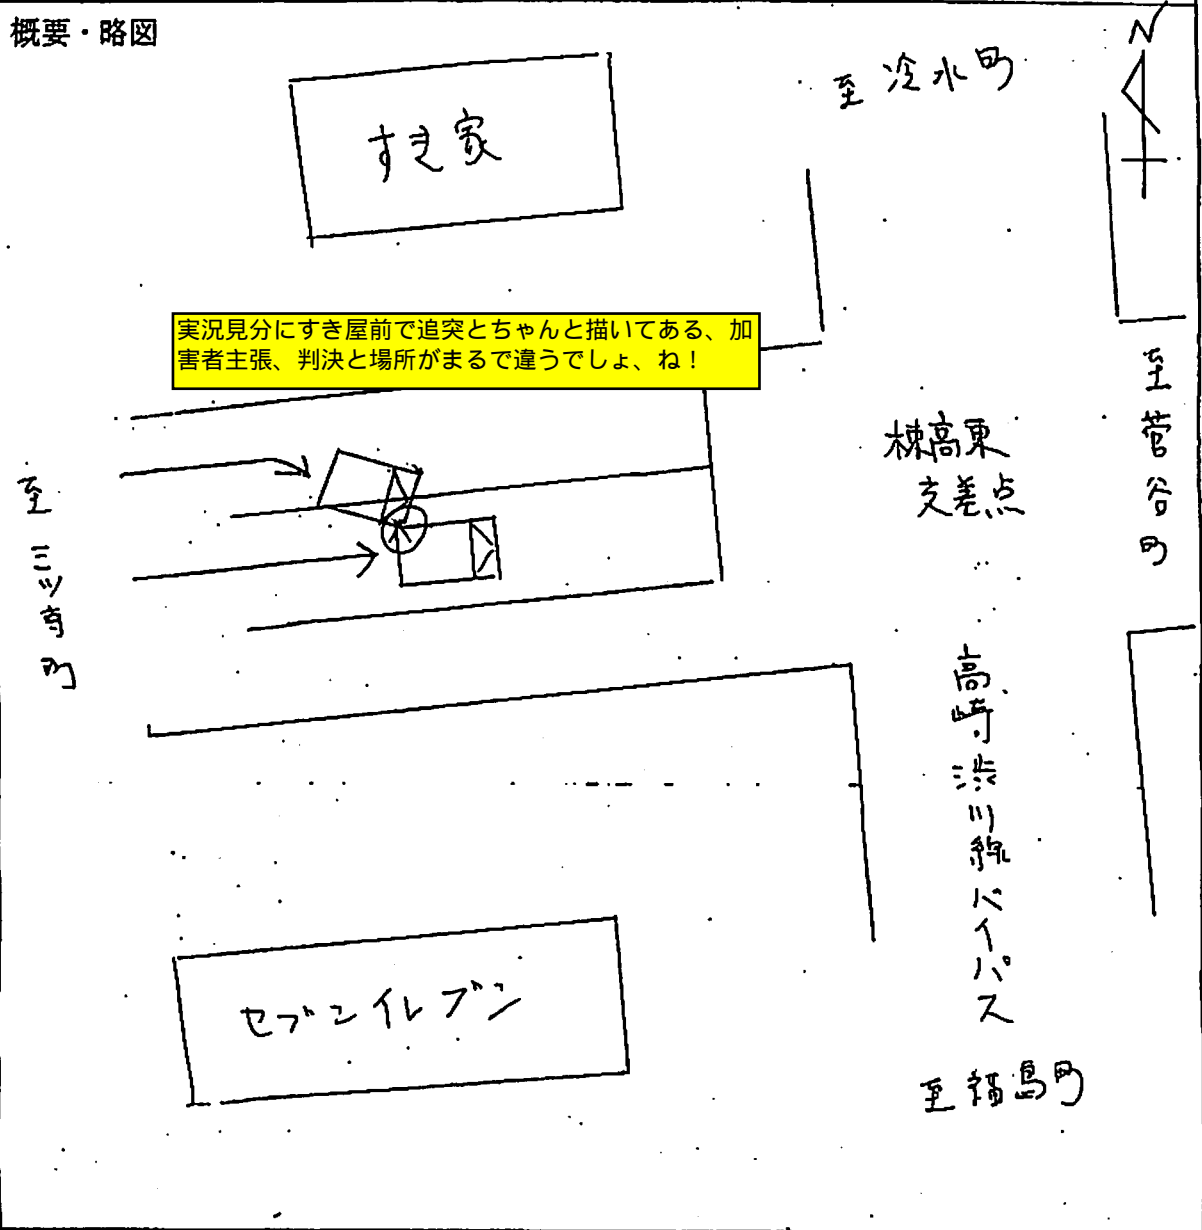 概要・略図
N
至 冷水町
すき家
実況見分にすき屋前で追突とちゃんと描いてある、加
害者主張、判決と場所がまるで違うでしょ、ね！
至 菅谷町
棟高東
交差点
至 三ツ寺町
高崎渋川線バイパス
セブンイレブン
至 福島町